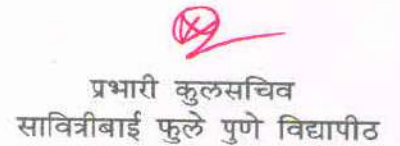 प्रभारी कुलसचिव
सावित्रीबाई फुले पुणे विद्यापीठ